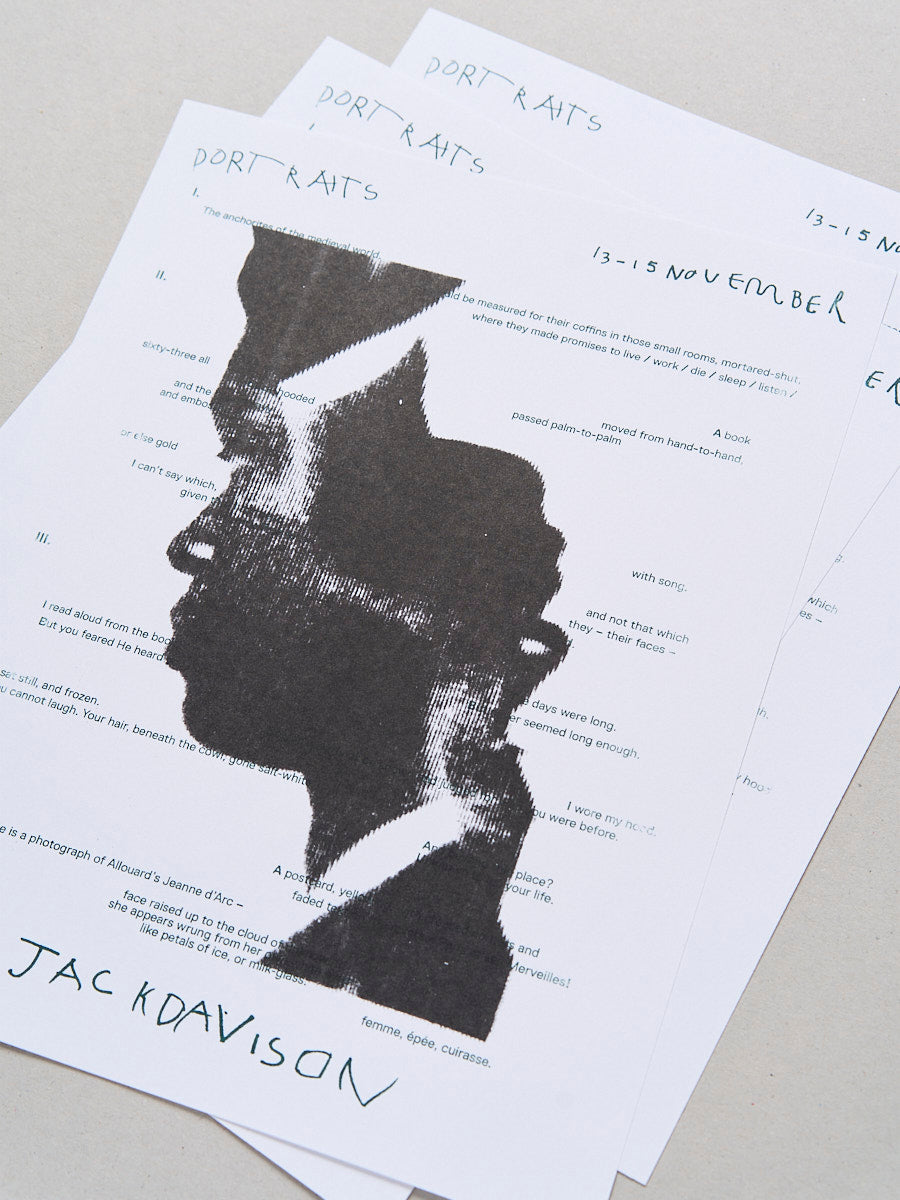 PORTRAITS
PORTRAITS
PORTRAITS
13-15 NO
13-15 NOVEMBER
ER
I.
The anchorites of the medieval world,
be measured for their coffins in those small rooms, mortared-shut,
where they made promises to live / work / die / sleep / listen /
II.
sixty-three all
and the hooded
and embo
A book
moved from hand-to-hand,
passed palm-to-palm
or else gold
I can't say which,
given
with song.
III.
and not that which
they – their faces –
which
es –
I read aloud from the boo
But you feared He heard
days were long.
er seemed long enough.
sat still, and frozen.
u cannot laugh. Your hair, beneath the cowl, gone salt-whit
I wore my hood.
ou were before.
place?
your life.
e is a photograph of Allouard's Jeanne d'Arc –
A postcard, yell
faded
face raised up to the cloud
she appears wrung from her
like petals of ice, or milk-glass.
and
Merveilles!
femme, épée, cuirasse.
JACK DAVISON